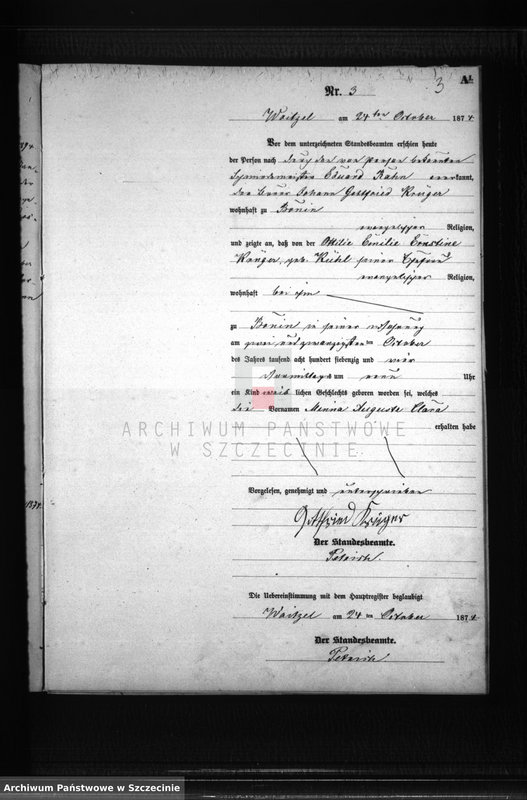 3
A1
Nr. 3
Woitzel am 24ten October 1874
Vor dem unterzeichneten Standesbeamten erschien heute
der Person nach durch den von Person bekannten
Eduard Rahn anerkannt,
der Bauer Johann Gottfried Krüger
wohnhaft zu Bonin
evangelischer Religion,
und zeigte an, daß von der Ottilie Emilie Ernstine
Krüger, geb. seiner Ehefrau
evangelischer Religion,
wohnhaft bei ihm
zu Bonin in seiner Wohnung
am zwei und zwanzigsten ten October
des Jahres tausend acht hundert siebenzig und vier
Vormittags um neun Uhr
ein Kind weiblichen Geschlechts geboren worden sei, welches
die Vornamen Minna Auguste Clara
erhalten habe
ARCHIWUM PAŃSTWOWE
W SZCZECINIE
Vorgelesen, genehmigt und unterschrieben
Gottfried Krüger
Der Standesbeamte.
Die Uebereinstimmung mit dem Hauptregister beglaubigt
Woitzel am 24 ten October 1874
Der Standesbeamte.
Archiwum Państwowe w Szczecinie